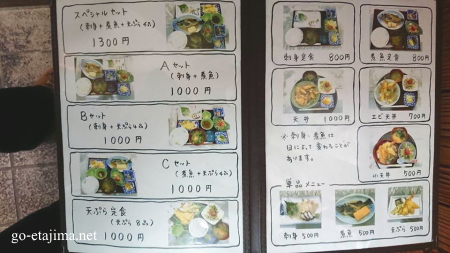 スペシャルセット
(刺身+煮魚+天ぷら4品)
1300円
Aセット
(刺身+煮魚)
1000円
Bセット
(刺身+天ぷら4品)
1000円
Cセット
(煮魚+天ぷら4品)
1000円
天ぷら定食
(天ぷら8品)
1000円
刺身定食 800円
煮魚定食 800円
天丼 1000円
エビ天丼 700円
※刺身、煮魚は
日によって変わることが
あります。
小天丼 500円
単品メニュー
刺身 500円
煮魚 500円
天ぷら 500円
go-etajima.net